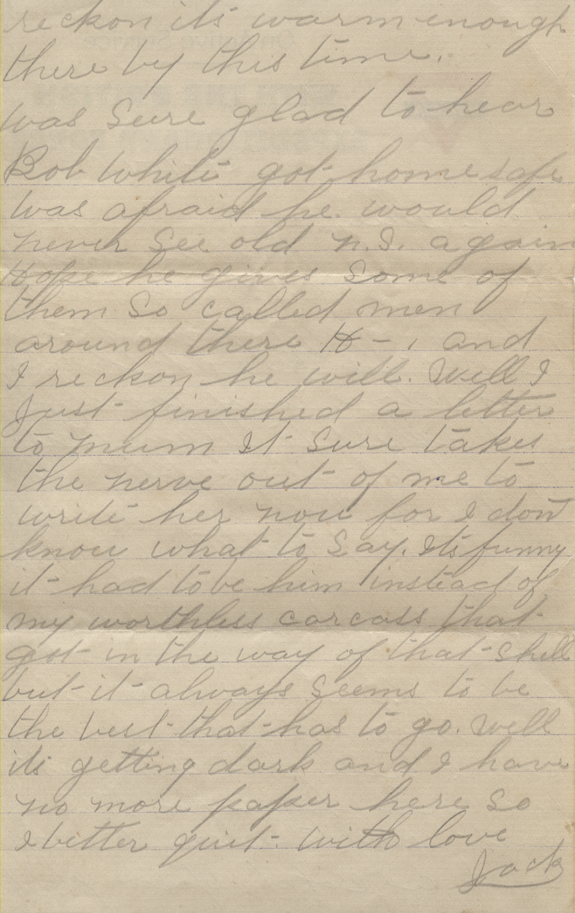 reckon its warm enough
there by this time.
was sure glad to hear
Bob White got home safe
was afraid he would
never see old N.S. again
Hope he gives some of
them so called men
around there H - , and
I reckon he will. Well I
just finished a letter
to mum It sure takes
the nerve out of me to
write her now for I dont
know what to say. Its funny
it had to be him instead of
my worthless carcass that
got in the way of that shell
but it always seems to be
the best that has to go. Well
its getting dark and I have
no more paper here so
I better quit. With love
Jack